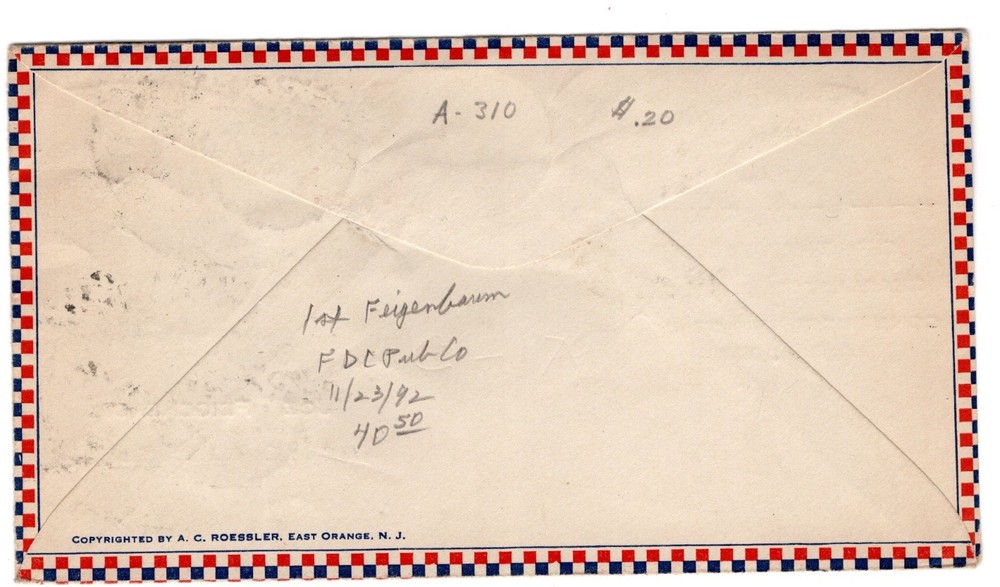 A-310 $.20
1st Feigenbaum
FDC Pub Co
11/23/92
40 50
COPYRIGHTED BY A. C. ROESSLER, EAST ORANGE, N. J.